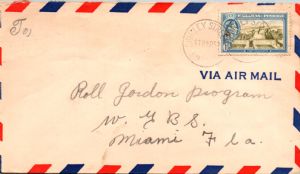 To,
VIA AIR MAIL
Roll Gordon Program
W. G B S.
Miami Fla.